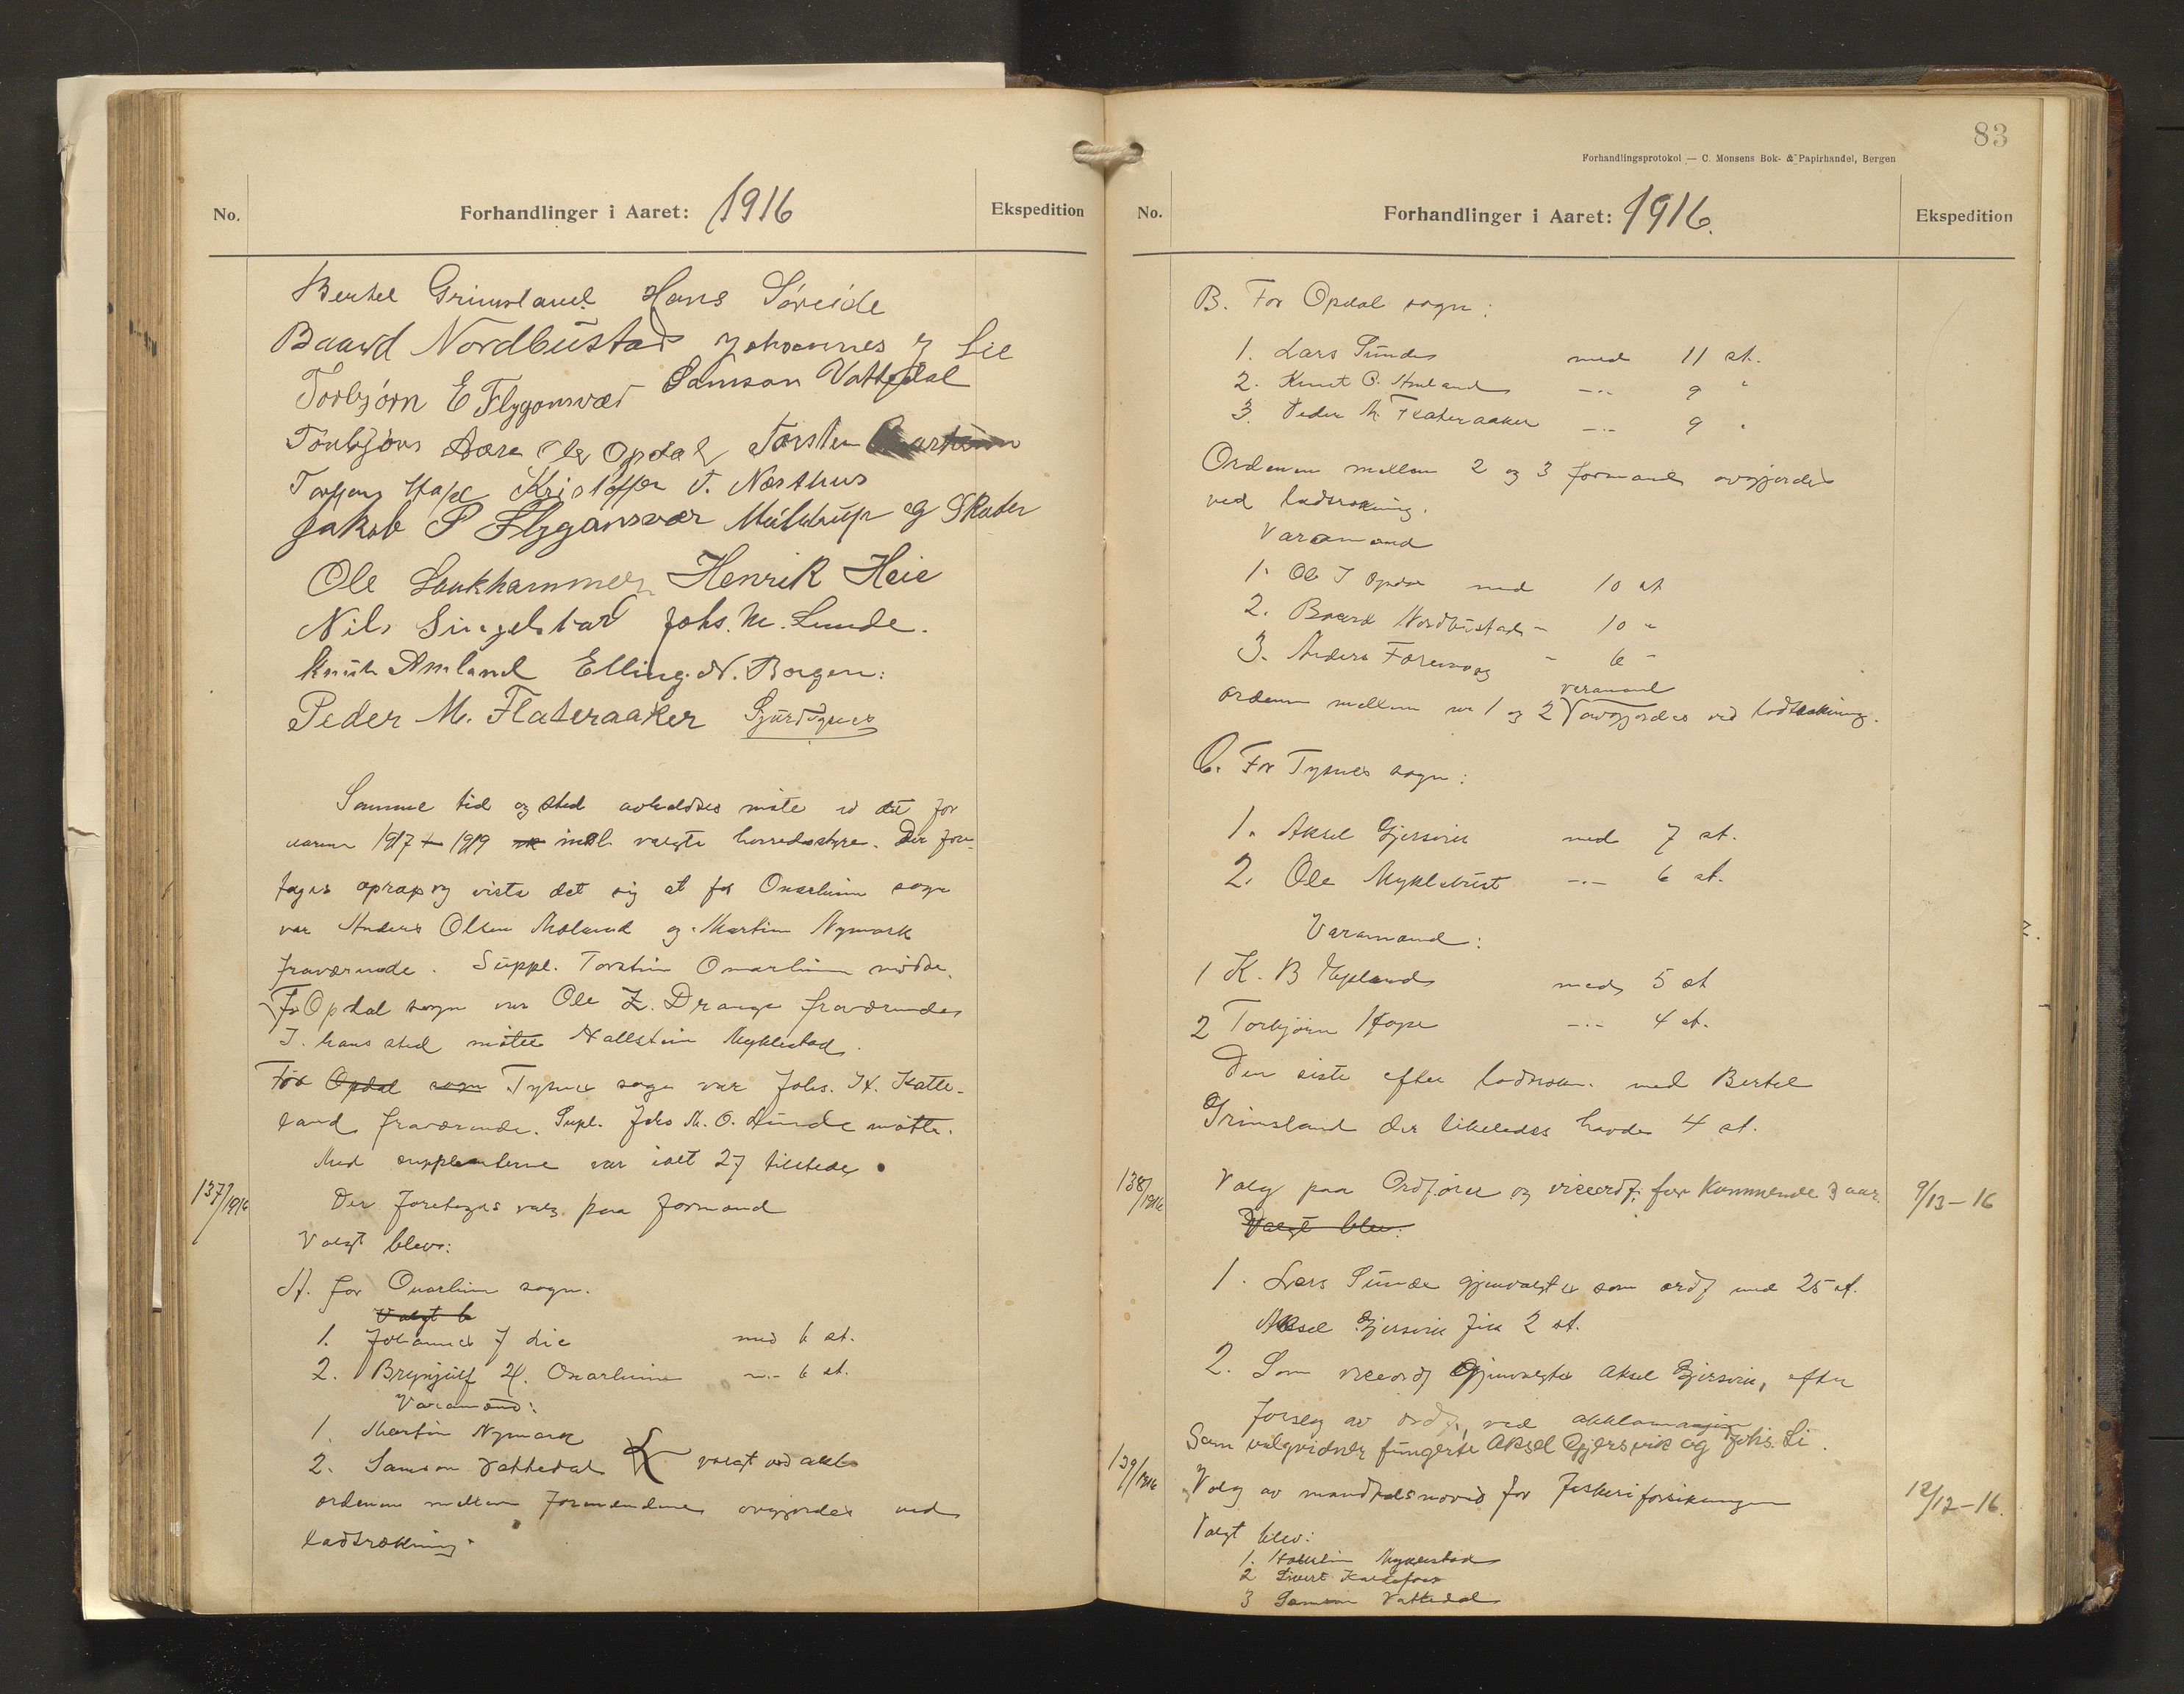 No.
Forhandlinger i Aaret: 1916
Ekspedition
Bertel Grimsland. Hans Søreide
Baard Nordbustad Johannes J Lie
Torbjørn E Flygansvær Samson Vattedal
Torbjørn Aare Ole Opdal Torsten
Torbjørn Hope Kristoffer T. Næsthus
Jakob P Flygansvær og Skaten
Ole Laukhammer Henrik Heie
Nils Singelstad Johs. M. Lunde.
Knut Amland Elling N. Borgen:
Peder M. Flateraaker Sjurd Tysnes
Samme tid og sted avholdtes møte i det for
aarene 1917 1919 inkl. valgte herredsstyre. Der fore-
toges oprop og viste det sig at for Onarheim sogn
var Anders Olsen Møland og Martin Nymark
fraværende. Suppl. Torstein Onarheim mødte.
For Opdal sogn var Ole Z. Drange fraværende
I hans sted møtte Hallstein Myklestad.
For Opdal sogn Tysnes sogn var Johs. H. Katte-
land fraværende. Supl. Johs M. O. Lunde møtte.
Med supplenterne var ialt 27 tilstede.
137/1916
Der foretoges valg paa formænd
Valgt blev:
A. for Onarheim sogn.
Valgt b
1. Johannes J Lie med 6 st.
2. Brynjulf H. Onarheim -.- 6 st.
Varamænd:
1. Martin Nymark
2. Samson Vattedal valgt ved akl.
ordenen mellem formændene avgjordes ved
lodtrækning.
83
Forhandlingsprotokol — C. Monsens Bok- & Papirhandel, Bergen
No.
Forhandlinger i Aaret: 1916.
Ekspedition
B. For Opdal sogn:
1. Lars Sunde med 11 st.
2. Knut O. Amland -.- 9 "
3. Peder M. Flateraaker -.- 9 "
Ordenen mellem 2 og 3 formand avgjordes
ved lodtrækning.
Varamænd
1. Ole J Opdal med 10 st
2. Baard Nordbustad - 10 "
3. Anders Færevaag - 6 -
varamand
ordenen mellem nr 1 og 2 avgjordes ved lodtrækning.
C. For Tysnes sogn:
1. Aksel Gjersvik med 7 st.
2. Ole Myklebust -.- 6 st.
Varamænd:
1 K. B. Epland med 5 st
2 Torbjørn Hope -.- 4 st.
Den siste efter lodtrækn. med Bertel
Grimsland der likeledes havde 4 st.
138/1916
Valg paa Ordfører og viceordf. for kommende 3 aar.
9/13-16
Valgt blev:
1. Lars Sunde gjenvalgtes som ordf med 25 st.
Aksel Gjersvik fik 2 st.
2. Som viceordf gjenvalgtes Aksel Gjersvik, efter
forslag av ordf, ved akklamasjon
Som valgvidner fungerte Aksel Gjersvik og Johs. Li.
139/1916
Valg av mandtalsnævnd for fiskeriforsikringen
12/12-16.
Valgt blev:
1. Hallstein Myklestad
2 Sivert
3 Samson Vattedal